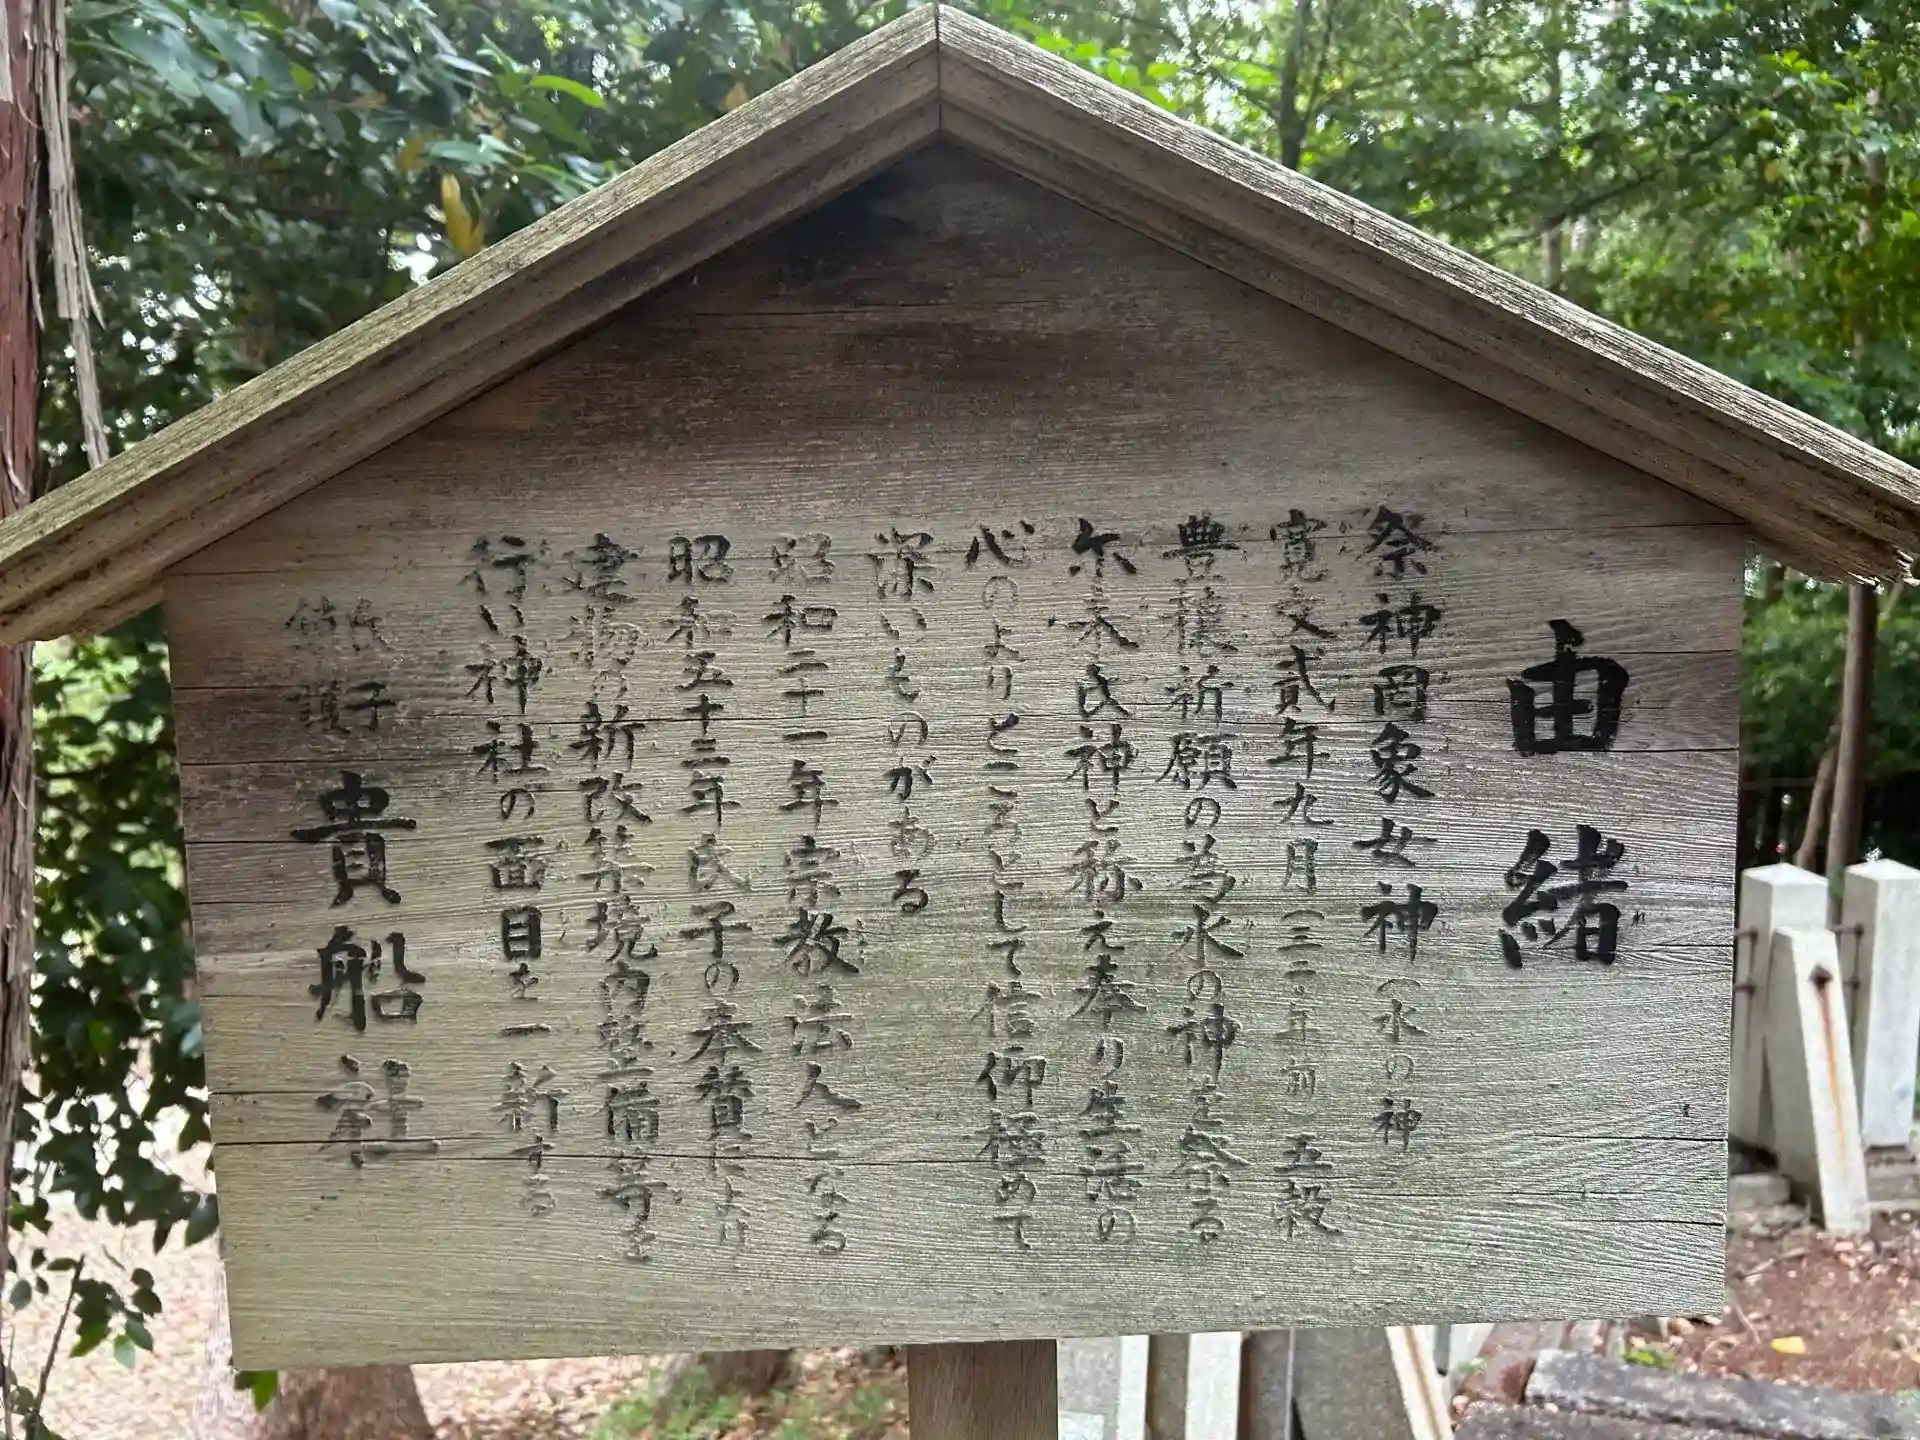 由緒
祭神罔象女神(水の神
寛文貳年九月(三二〇年前)五穀
豊穣祈願の為水の神を祭る
尓来氏神と称え奉り生活の
心のよりどころとして信仰極めて
深いものがある
昭和二十一年宗教法人となる
昭和五十三年氏子の奉賛により
建物の新改築境内整備等を
行い神社の面目を一新する
氏子
守護
貴船社